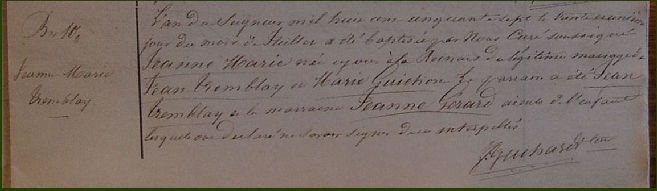 Bme 18,
Jeanne Marie
Tremblay
L'an du Seigneur mil huit cent cinquante sept le trente unième
jour du mois de Juillet a été baptisée par Nous Curé soussigné
Jeanne Marie née ce jour à la Roinais du légitime mariage de
Jean Tremblay et Marie Guichon Le parrain a été Jean
Tremblay et la marraine Jeanne Gérard aieuls de l'enfant
lesquels ont déclaré ne savoir signer de ce interpellés
Guichard